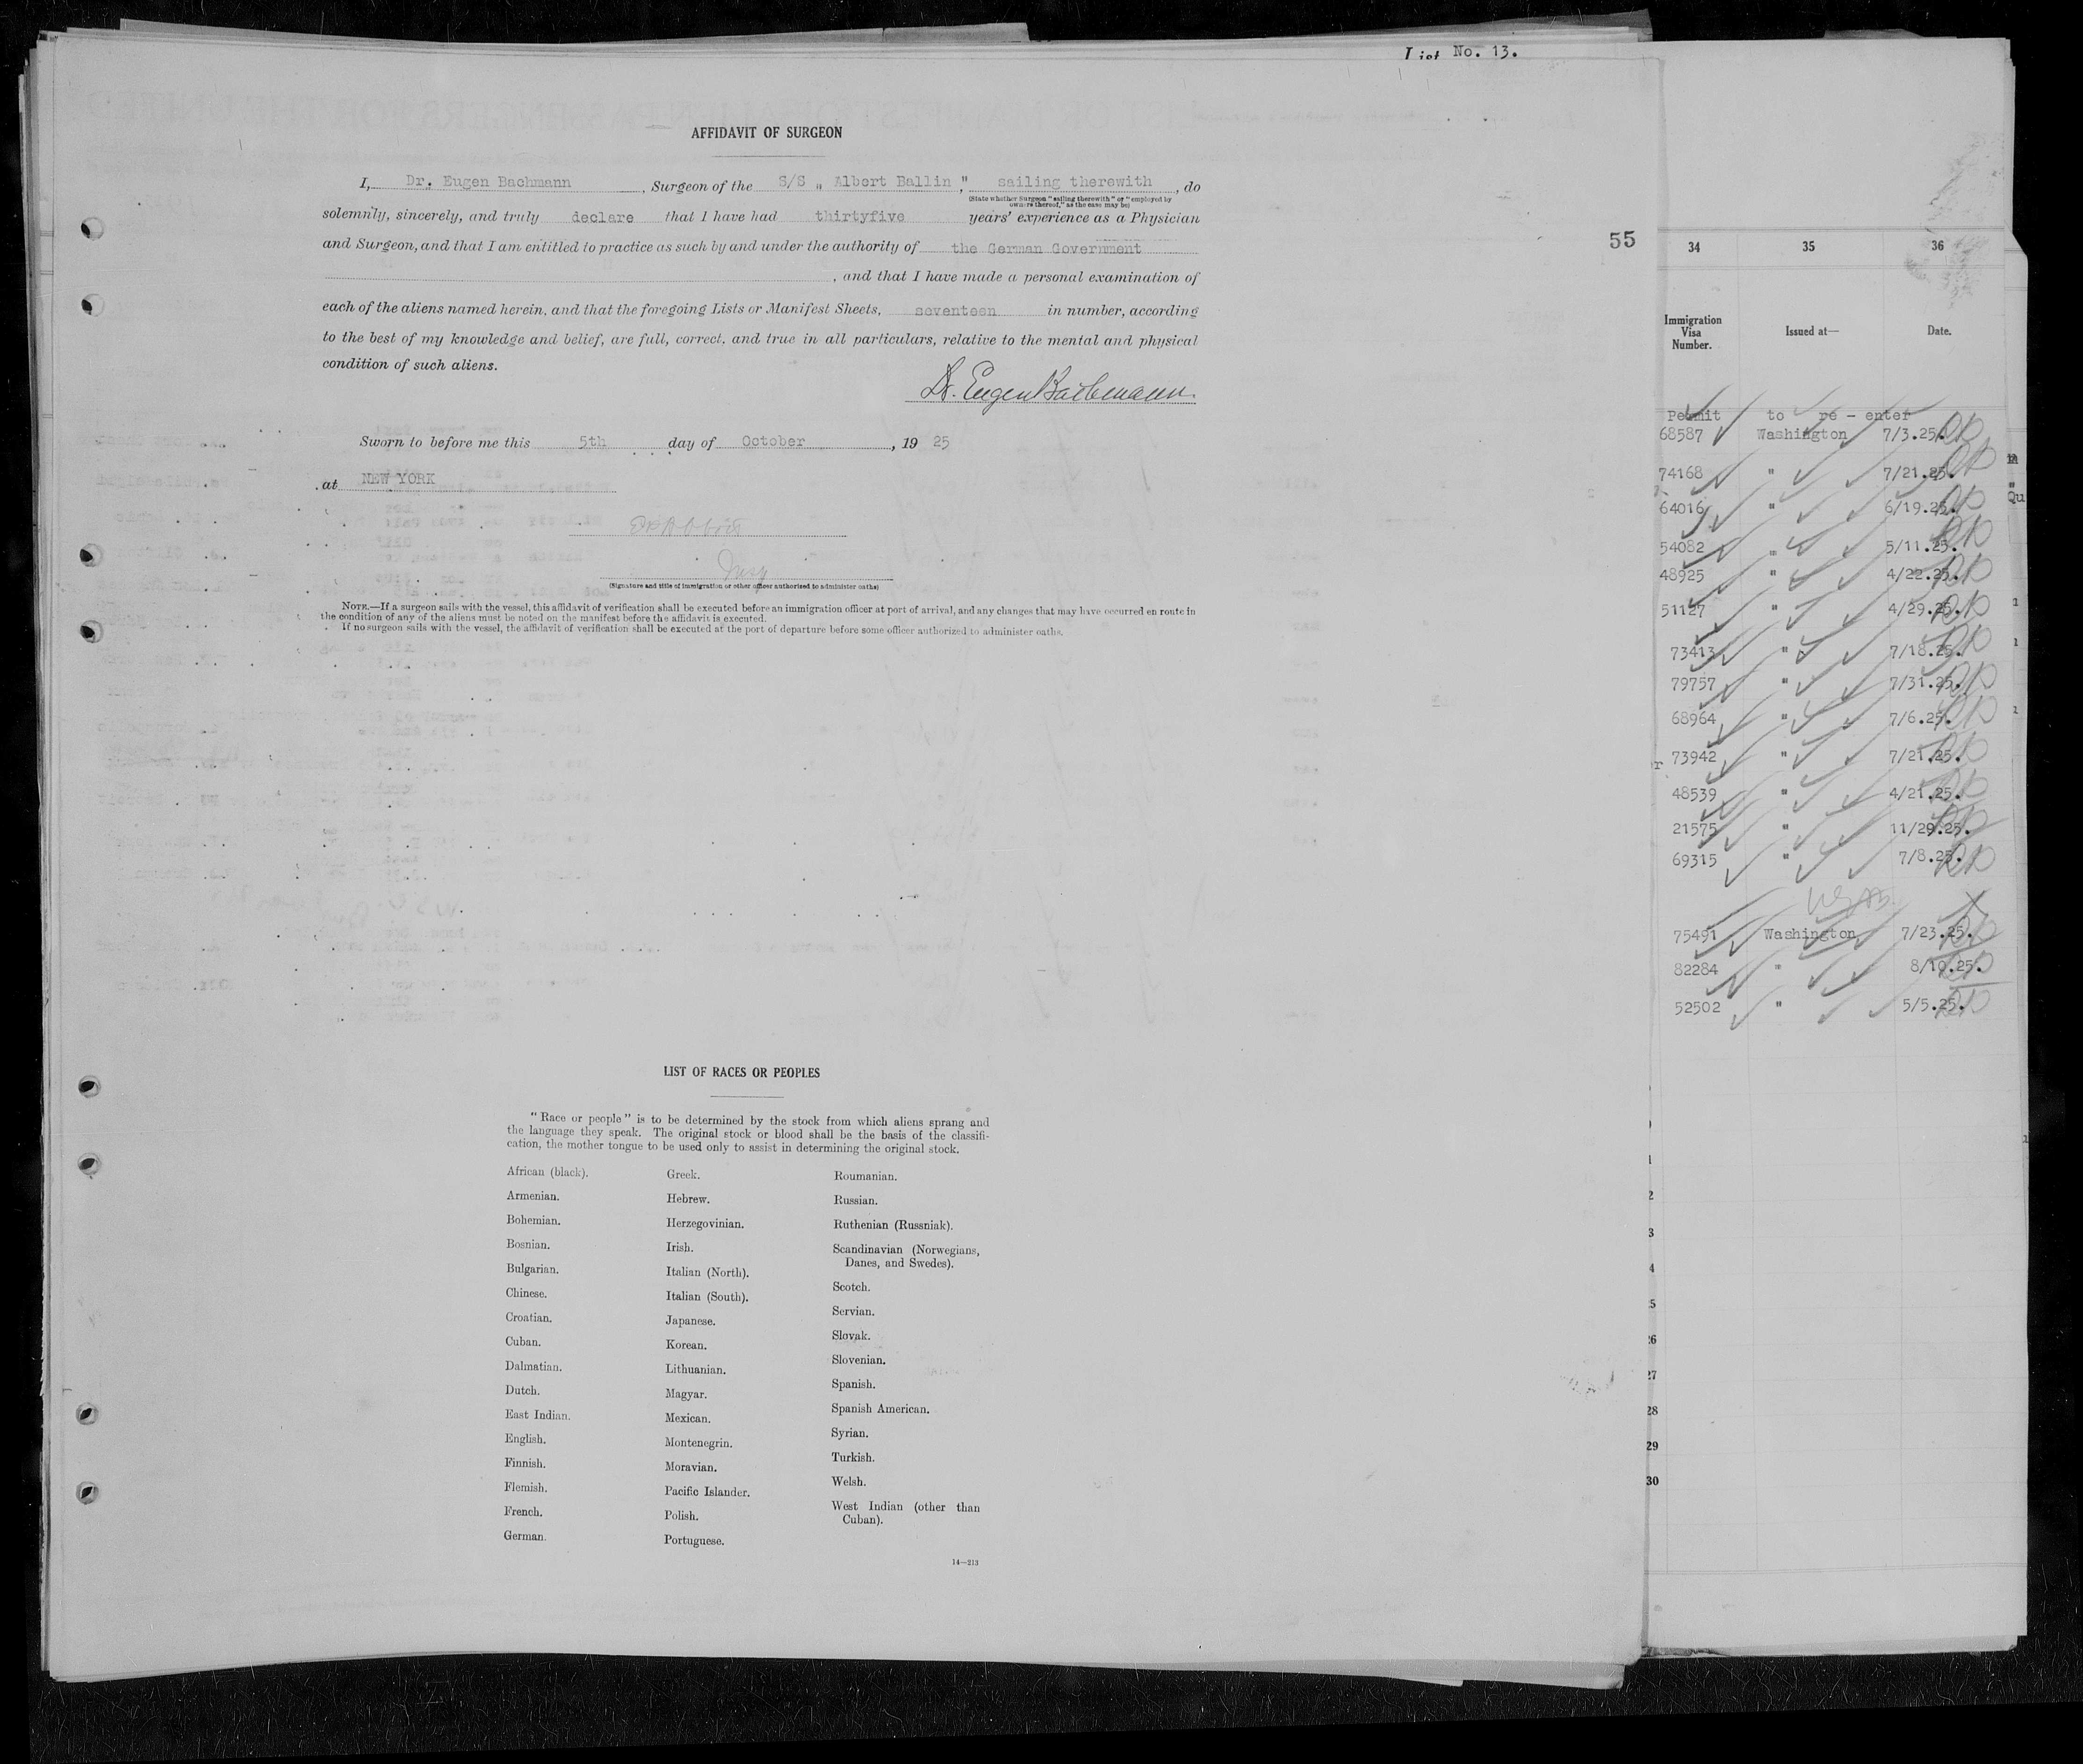 List No. 13.
AFFIDAVIT OF SURGEON
I, Dr. Eugen Bachmann, Surgeon of the S/S „ Albert Ballin ", sailing therewith, do
(State whether Surgeon "sailing therewith" or "employed by
owners thereof," as the case may be)
solemnly, sincerely, and truly declare that I have had thirtyfive years' experience as a Physician
and Surgeon, and that I am entitled to practice as such by and under the authority of the German Government
, and that I have made a personal examination of
each of the aliens named herein, and that the foregoing Lists or Manifest Sheets, seventeen in number, according
to the best of my knowledge and belief, are full, correct, and true in all particulars, relative to the mental and physical
condition of such aliens.
Dr. Eugen Bachmann.
Sworn to before me this 5th day of October, 19 25
at NEW YORK
Insp
(Signature and title of immigration or other officer authorized to administer oaths)
NOTE.—If a surgeon sails with the vessel, this affidavit of verification shall be executed before an immigration officer at port of arrival, and any changes that may have occurred en route in
the condition of any of the aliens must be noted on the manifest before the affidavit is executed.
If no surgeon sails with the vessel, the affidavit of verification shall be executed at the port of departure before some officer authorized to administer oaths.
LIST OF RACES OR PEOPLES
"Race or people" is to be determined by the stock from which aliens sprang and
the language they speak. The original stock or blood shall be the basis of the classifi-
cation, the mother tongue to be used only to assist in determining the original stock.
African (black).
Armenian.
Bohemian.
Bosnian.
Bulgarian.
Chinese.
Croatian.
Cuban.
Dalmatian.
Dutch.
East Indian.
English.
Finnish.
Flemish.
French.
German.
Greek.
Hebrew.
Herzegovinian.
Irish.
Italian (North).
Italian (South).
Japanese.
Korean.
Lithuanian.
Magyar.
Mexican.
Montenegrin.
Moravian.
Pacific Islander.
Polish.
Portuguese.
Roumanian.
Russian.
Ruthenian (Russniak).
Scandinavian (Norwegians,
Danes, and Swedes).
Scotch.
Servian.
Slovak.
Slovenian.
Spanish.
Spanish American.
Syrian.
Turkish.
Welsh.
West Indian (other than
Cuban).
14—213
55
34 35 36
Immigration
Visa
Number.
Issued at—
Date.
Permit to re - enter
68587 Washington 7/3.25.
74168 " 7/21.25.
64016 " 6/19.25.
54082 " 5/11.25.
48925 " 4/22.25.
51127 " 4/29.25.
73413 " 7/18.25.
79757 " 7/31.25.
68964 " 7/6.25.
73942 " 7/21.25.
48539 " 4/21.25.
21575 " 11/29.25.
69315 " 7/8.25.
75491 Washington 7/23.25.
82284 " 8/10.25.
52502 " 5/5.25.
28
29
30